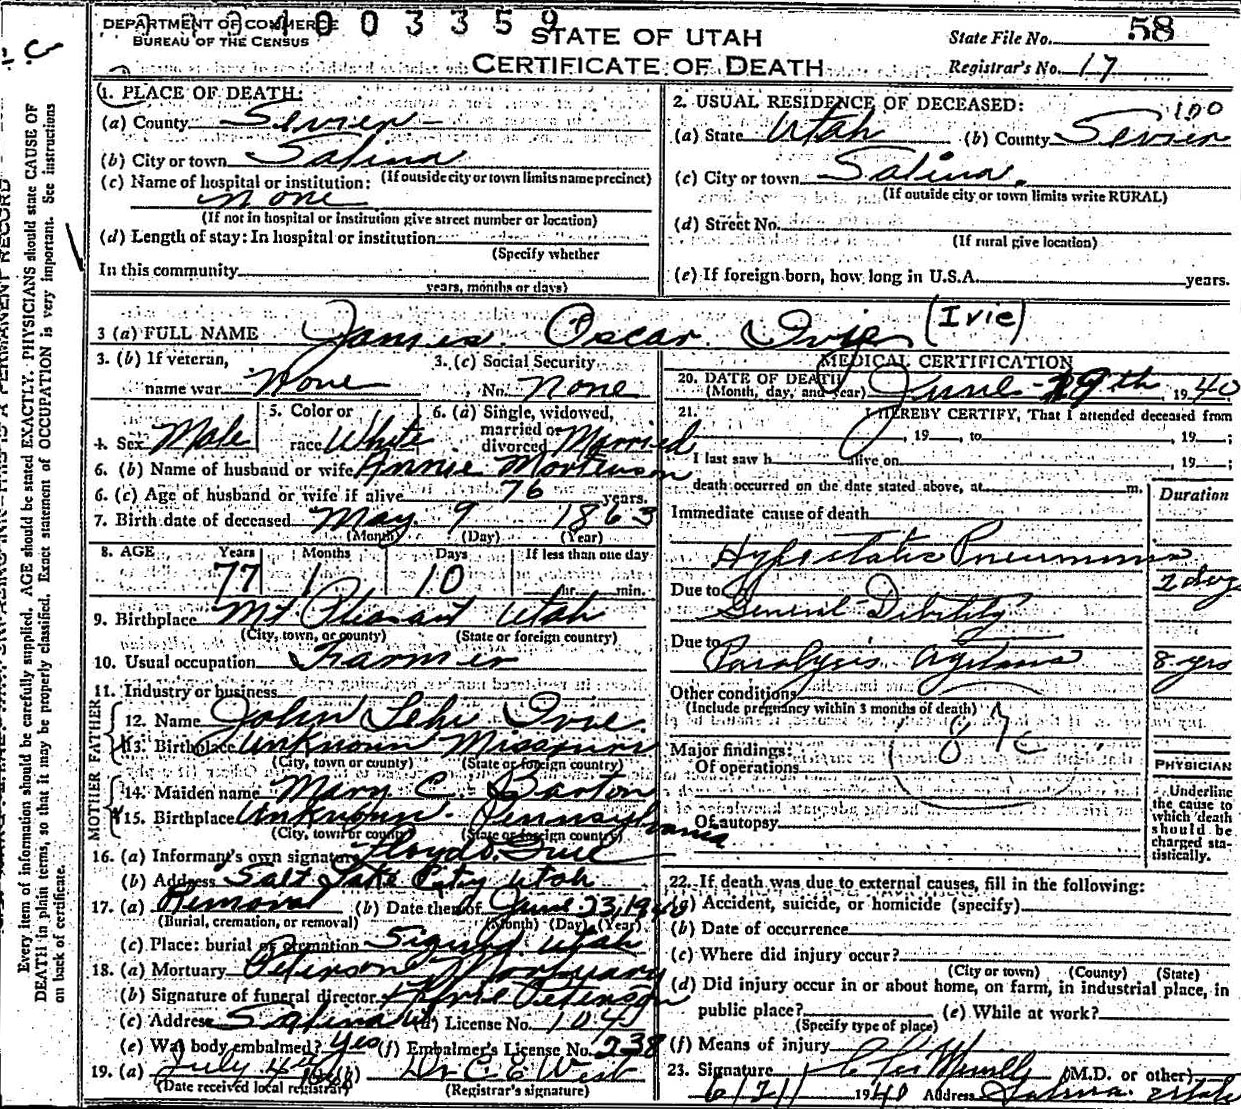 DEPARTMENT OF COMMERCE
BUREAU OF THE CENSUS
1003359
STATE OF UTAH
CERTIFICATE OF DEATH
State File No. 58
Registrar's No. 17
Every item of information should be carefully supplied. AGE should be stated EXACTLY. PHYSICIANS should state CAUSE OF
DEATH in plain terms, so that it may be properly classified. Exact statement of OCCUPATION is very important. See instructions
on back of certificate.
1. PLACE OF DEATH:
(a) County Sevier
(b) City or town Salina
(If outside city or town limits name precinct)
(c) Name of hospital or institution:
none
(If not in hospital or institution give street number or location)
(d) Length of stay: In hospital or institution
(Specify whether
In this community
years, months or days)
2. USUAL RESIDENCE OF DECEASED: 100
(a) State Utah (b) County Sevier
(c) City or town Salina.
(If outside city or town limits write RURAL)
(d) Street No.
(If rural give location)
(e) If foreign born, how long in U.S.A. years.
3 (a) FULL NAME James Oscar Ivie (Ivie)
3. (b) If veteran, name war None
3. (c) Social Security No. none
4. Sex Male
5. Color or race White
6. (a) Single, widowed, married or divorced Married
6. (b) Name of husband or wife Annie Mortenson
6. (c) Age of husband or wife if alive 76 years.
7. Birth date of deceased May 9 1863
(Month) (Day) (Year)
8. AGE Years Months Days If less than one day
77 1 10 hr. min.
9. Birthplace Mt Pleasant Utah
(City, town, or county) (State or foreign country)
10. Usual occupation Farmer
11. Industry or business
FATHER
12. Name John Lehi Ivie.
13. Birthplace Unknown Missouri
(City, town or county) (State or foreign country)
MOTHER
14. Maiden name Mary C. Barton
15. Birthplace Unknown Pennsylvania
(City, town or county) (State or foreign country)
16. (a) Informant's own signature Floyd O. Ivie
(b) Address Salt Lake City Utah
17. (a) Removal (b) Date thereof June 23, 1940
(Burial, cremation, or removal) (Month) (Day) (Year)
(c) Place: burial or cremation Sigurd Utah
18. (a) Mortuary Peterson Mortuary
(b) Signature of funeral director Peterson
(c) Address Salina U (d) License No. 104
(e) Was body embalmed? yes (f) Embalmer's License No. 238
19. (a) July 4 (b) Dr C. E. West
(Date received local registrar) (Registrar's signature)
MEDICAL CERTIFICATION
20. DATE OF DEATH
(Month, day, and year) June 19th 1940
21. I HEREBY CERTIFY, That I attended deceased from
, 19 , to , 19 ;
I last saw h alive on , 19 ;
death occurred on the date stated above, at m.
Duration
Immediate cause of death
Hypostatic Pneumonia 2 days
Due to General Debility
Due to Paralysis Agitans 8 yrs
Other conditions
(Include pregnancy within 3 months of death)
87c
Major findings:
Of operations
Of autopsy
PHYSICIAN
Underline
the cause to
which death
should be
charged sta-
tistically.
22. If death was due to external causes, fill in the following:
(a) Accident, suicide, or homicide (specify)
(b) Date of occurrence
(c) Where did injury occur?
(City or town) (County) (State)
(d) Did injury occur in or about home, on farm, in industrial place, in
public place? (e) While at work?
(Specify type of place)
(f) Means of injury
23. Signature (M.D. or other)
6/21 1940 Address Salina Utah